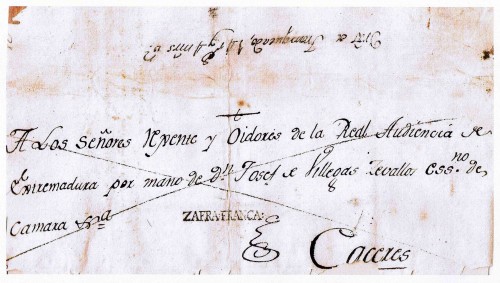 A Los Señores Rexente y Oidores de la Real Audiencia de
Extremadura por mano de Dn Josef de Villegas Zevallos Essno de
Camara
ZAFRA FRANCA
Caceres